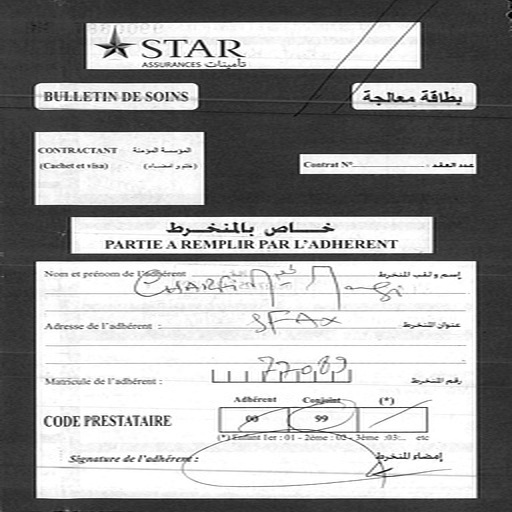 STAR
ASSURANCES تأمينات
BULLETIN DE SOINS
بطاقة معالجة
CONTRACTANT المؤسسة المؤمنة
(Cachet et visa) (ختم و امضاء)
Contrat N° عدد العقد
خاص بالمنخرط
PARTIE A REMPLIR PAR L'ADHERENT
Nom et prénom de l'adhérent إسم و لقب المنخرط
CHARFI
Adresse de l'adhérent : SFAX عنوان المنخرط
Matricule de l'adhérent : رقم المنخرط
Adhérent Conjoint (*)
CODE PRESTATAIRE 00 99
(*) Enfant 1er : 01 - 2ème : 02 - 3ème :03... etc
Signature de l'adhérent : إمضاء المنخرط